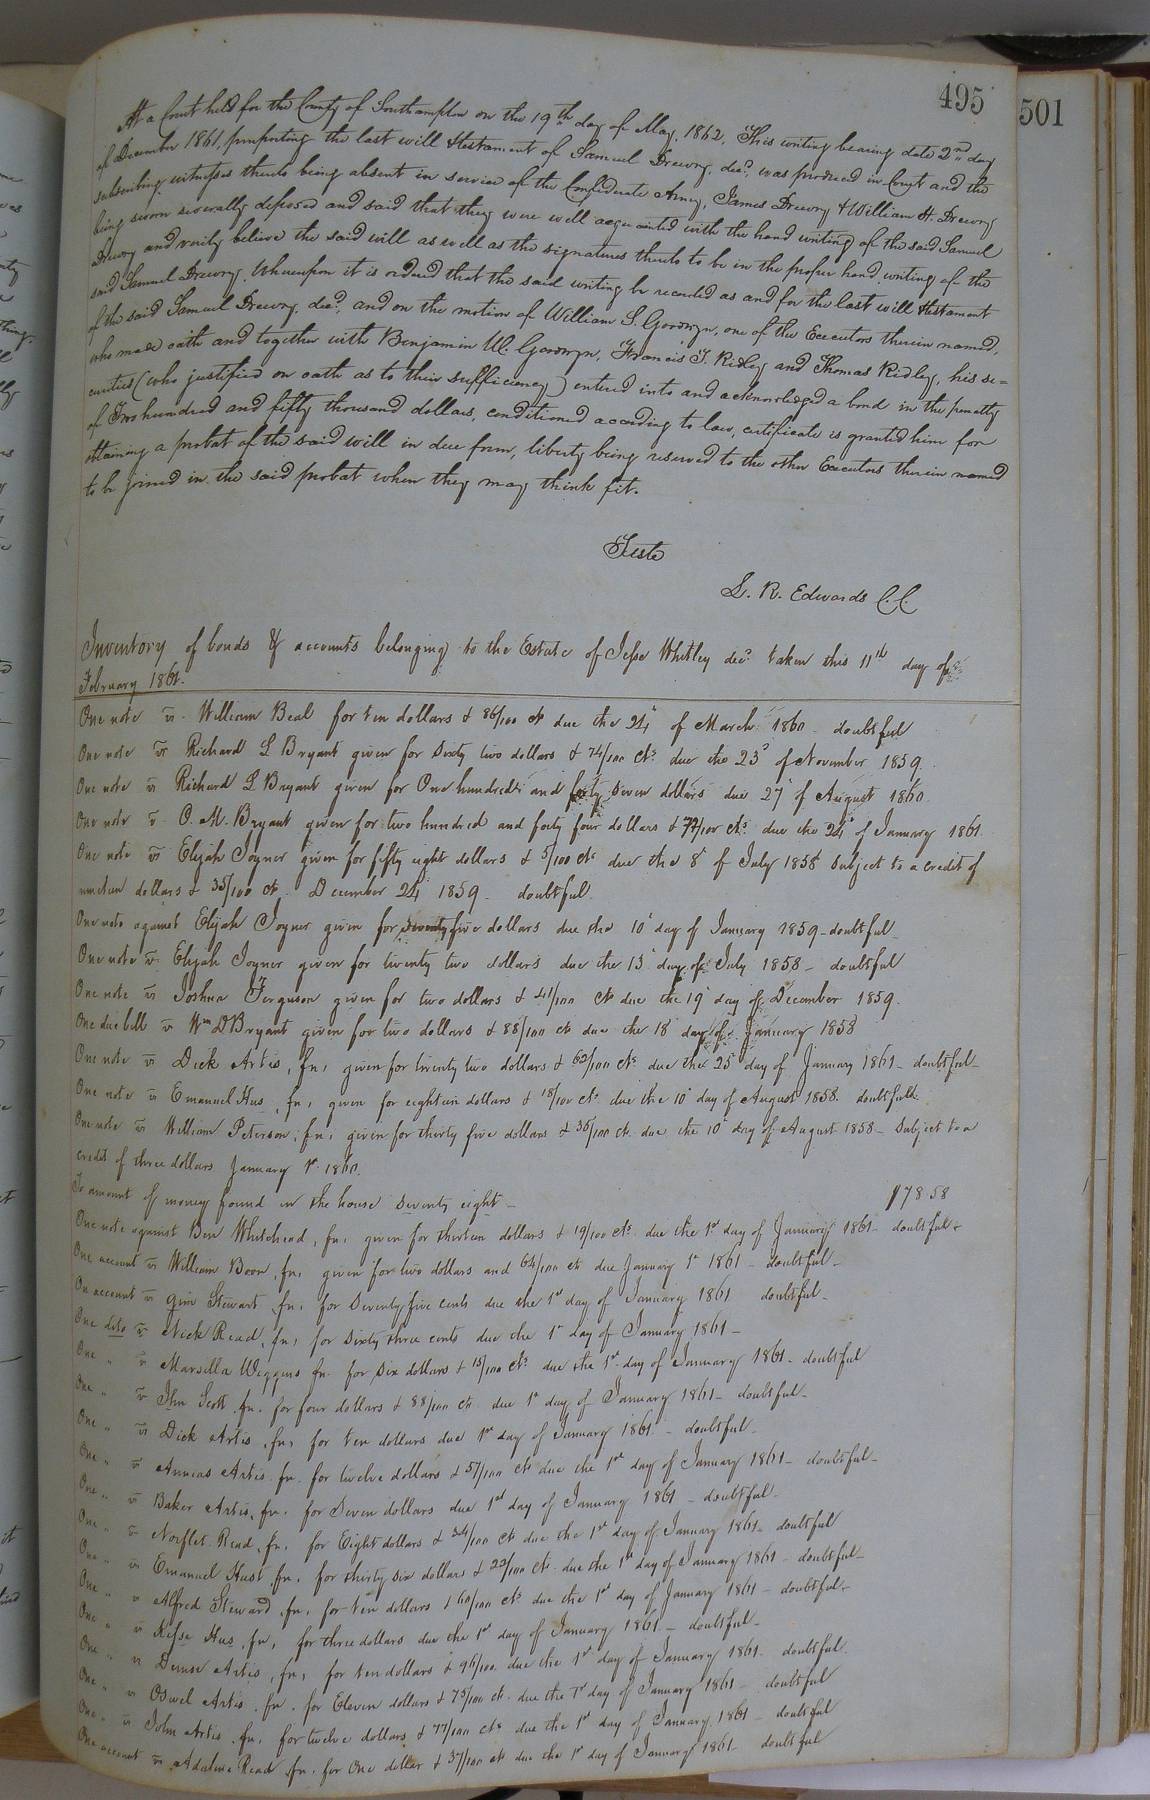 495
501
At a Court held for the County of Southampton on the 19th day of May, 1862, This writing bearing date 2nd day
of December 1861, purporting the last will & testament of Samuel Drewry, decd., was produced in Court and the
subscribing witnesses thereto being absent in service of the Confederate Army, James Drewry & William H. Drewry
being sworn severally deposed and said that they were well acquainted with the hand writing of the said Samuel
Drewry and verily believe the said will as well as the signatures thereto to be in the proper hand writing of the
said Samuel Drewry. Whereupon it is ordered that the said writing be recorded as and for the last will & testament
of the said Samuel Drewry, decd., and on the motion of William S. Goodwyn, one of the Executors therein named,
who made oath and together with Benjamin W. Goodwyn, Francis T. Ridley and Thomas Ridley, his se=
curities (who justified on oath as to their sufficiency) entered into and acknowledged a bond in the penalty
of Two hundred and fifty thousand dollars, conditioned according to law, certificate is granted him for
obtaining a probat of the said will in due form, liberty being reserved to the other Executors therein named
to be joined in the said probat when they may think fit.
Teste
L. R. Edwards C.C.
Inventory of bonds & accounts belonging to the Estate of Jesse Whitley decd. taken this 11th day of
February 1861.
One note vs William Beal for ten dollars & 86/100 cts due the 24 of March 1860 doubtful
One note vs Richard L Bryant given for sixty two dollars & 74/100 cts. due the 23 of November 1859
One note vs Richard L Bryant given for One hundred and forty seven dollars due 27 of August 1860
One note vs O. M. Bryant given for two hundred and forty four dollars & 77/100 cts. due the 24 of January 1861
One note vs Elijah Joyner given for fifty eight dollars & 5/100 cts due the 8 of July 1858 Subject to a credit of
nineteen dollars & 35/100 cts December 24 1859 - doubtful
One note against Elijah Joyner given for seventy five dollars due the 10 day of January 1859 - doubtful
One note vs Elijah Joyner given for twenty two dollars due the 13 day of July 1858 - doubtful
One note vs Joshua Ferguson given for two dollars & 41/100 cts due the 19 day of December 1859.
One due bill vs Wm D Bryant given for two dollars & 88/100 cts due the 18 day of January 1858
One note vs Dick Artis, fn, given for twenty two dollars & 62/100 cts due the 25 day of January 1861 - doubtful
One note vs Emanuel Hus, fn, given for eighteen dollars & 18/100 cts. due the 10 day of August 1858. doubtful
One note vs William Peterson, fn, given for thirty five dollars & 36/100 cts due the 10 day of August 1858 - Subject to a
credit of three dollars January 1st 1860.
To amount of money found in the house seventy eight - $78 58
One note against Ben Whitehead, fn, given for thirteen dollars & 19/100 cts. due the 1st day of January 1861 - doubtful
One account vs William Boon, fn, given for two dollars and 64/100 cts due January 1st 1861 - doubtful
One account vs Stewart, fn, for seventy five cents due the 1st day of January 1861 doubtful
One dito vs Nick Read, fn, for sixty three cents due the 1st day of January 1861 -
One " vs Marsilla Wiggins fn. for six dollars & 15/100 cts due the 1st day of January 1861 - doubtful
One " vs Jhn Scott, fn. for four dollars & 88/100 cts due 1st day of January 1861 - doubtful
One " vs Dick Artis, fn, for ten dollars due 1st day of January 1861 - doubtful
One " vs Artis fn. for twelve dollars & 57/100 cts due the 1st day of January 1861 - doubtful
One " vs Baker Artis, fn. for seven dollars due 1st day of January 1861 - doubtful
One " vs Norflet Read, fn, for Eight dollars & 34/100 cts due the 1st day of January 1861 - doubtful
One " vs Emanuel Hust fn. for thirty six dollars & 22/100 cts due the 1st day of January 1861 - doubtful
One " vs Alfred Steward, fn, for ten dollars & 60/100 cts. due the 1st day of January 1861 - doubtful
One " vs Hus, fn, for three dollars due the 1st day of January 1861 - doubtful
One " vs Artis, fn, for ten dollars & 96/100 due the 1st day of January 1861 doubtful
One " vs Oswel Artis, fn. for Eleven dollars & 75/100 cts due the 1st day of January 1861 - doubtful
One " vs John Artis, fn, for twelve dollars & 77/100 cts due the 1st day of January 1861 doubtful
One account vs Adaline Read fn. for One dollar & 37/100 cts due the 1st day of January 1861 doubtful